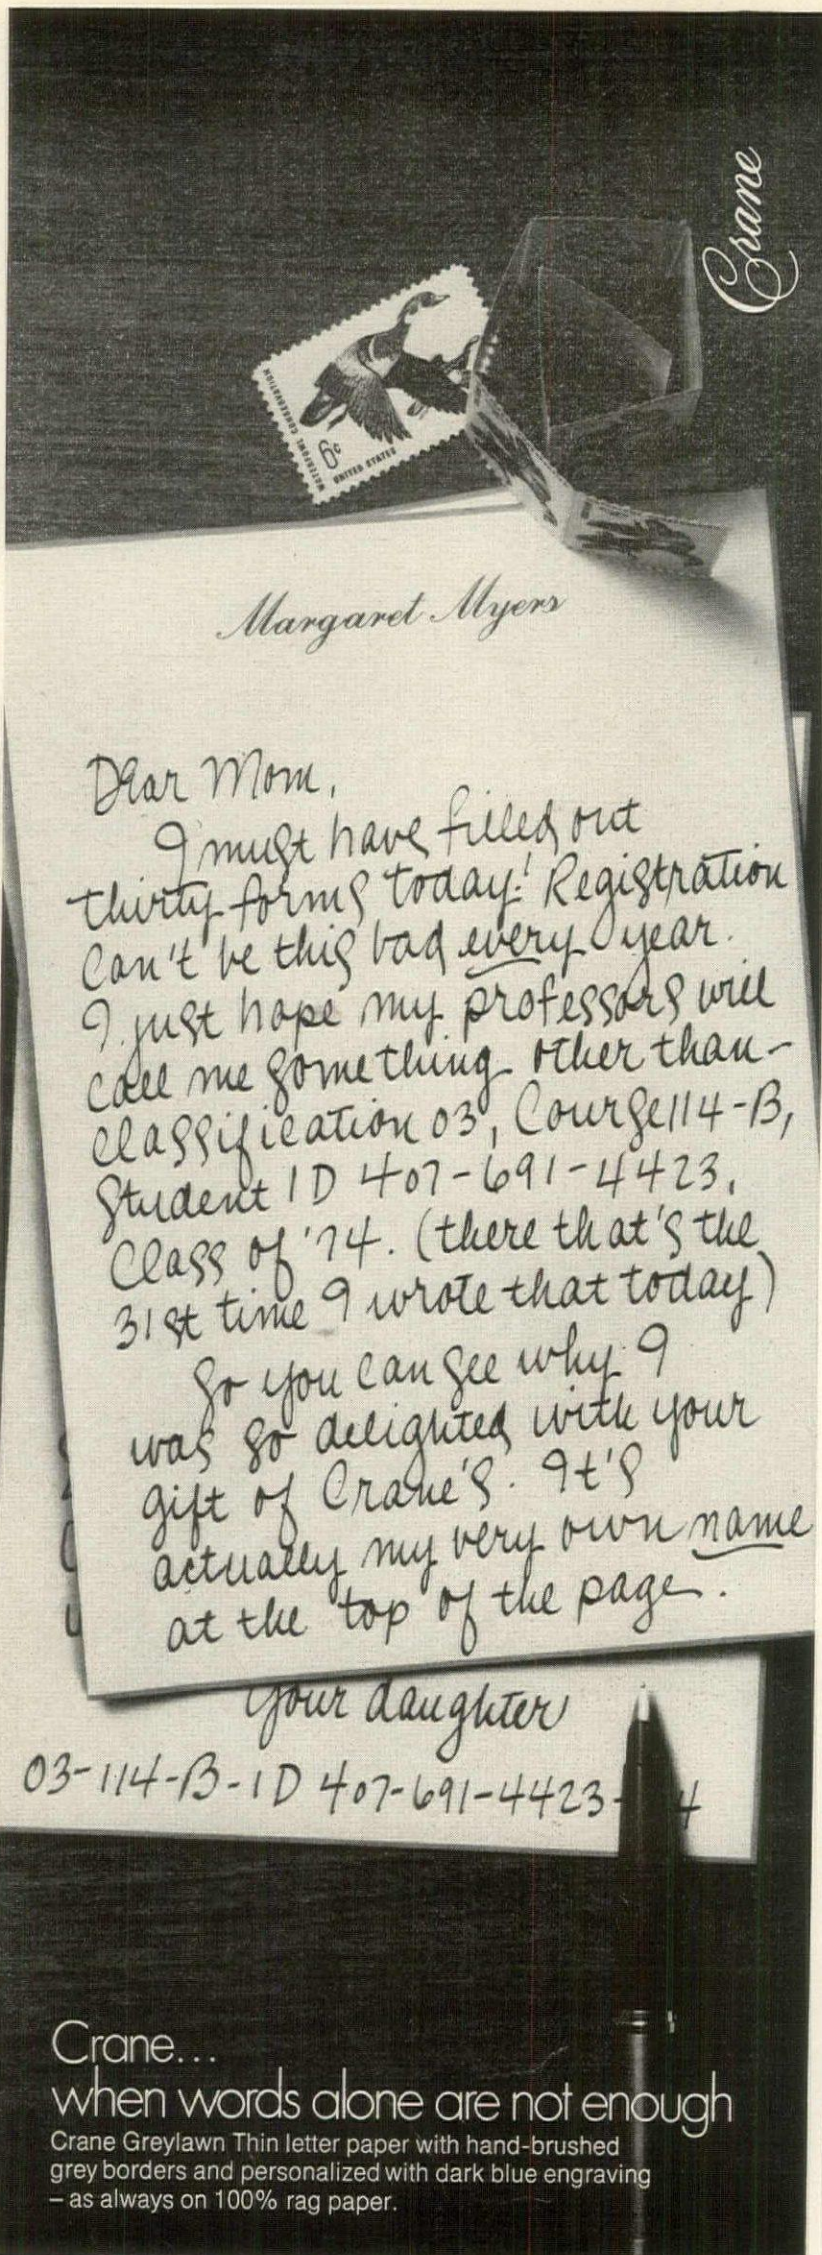 Crane
WATERFOWL CONSERVATION
6c
UNITED STATES
Margaret Myers
Dear Mom,
I must have filled out
thirty forms today! Registration
can't be this bad every year.
I just hope my professors will
call me something other than-
Classification 03, Course 114-B,
Student ID 407-691-4423,
Class of '74. (there that's the
31st time I wrote that today)
So you can see why I
was so delighted with your
gift of Crane's. It's
actually my very own name
at the top of the page.
Your daughter
03-114-B-ID 407-691-4423- 4
Crane...
when words alone are not enough
Crane Greylawn Thin letter paper with hand-brushed
grey borders and personalized with dark blue engraving
– as always on 100% rag paper.